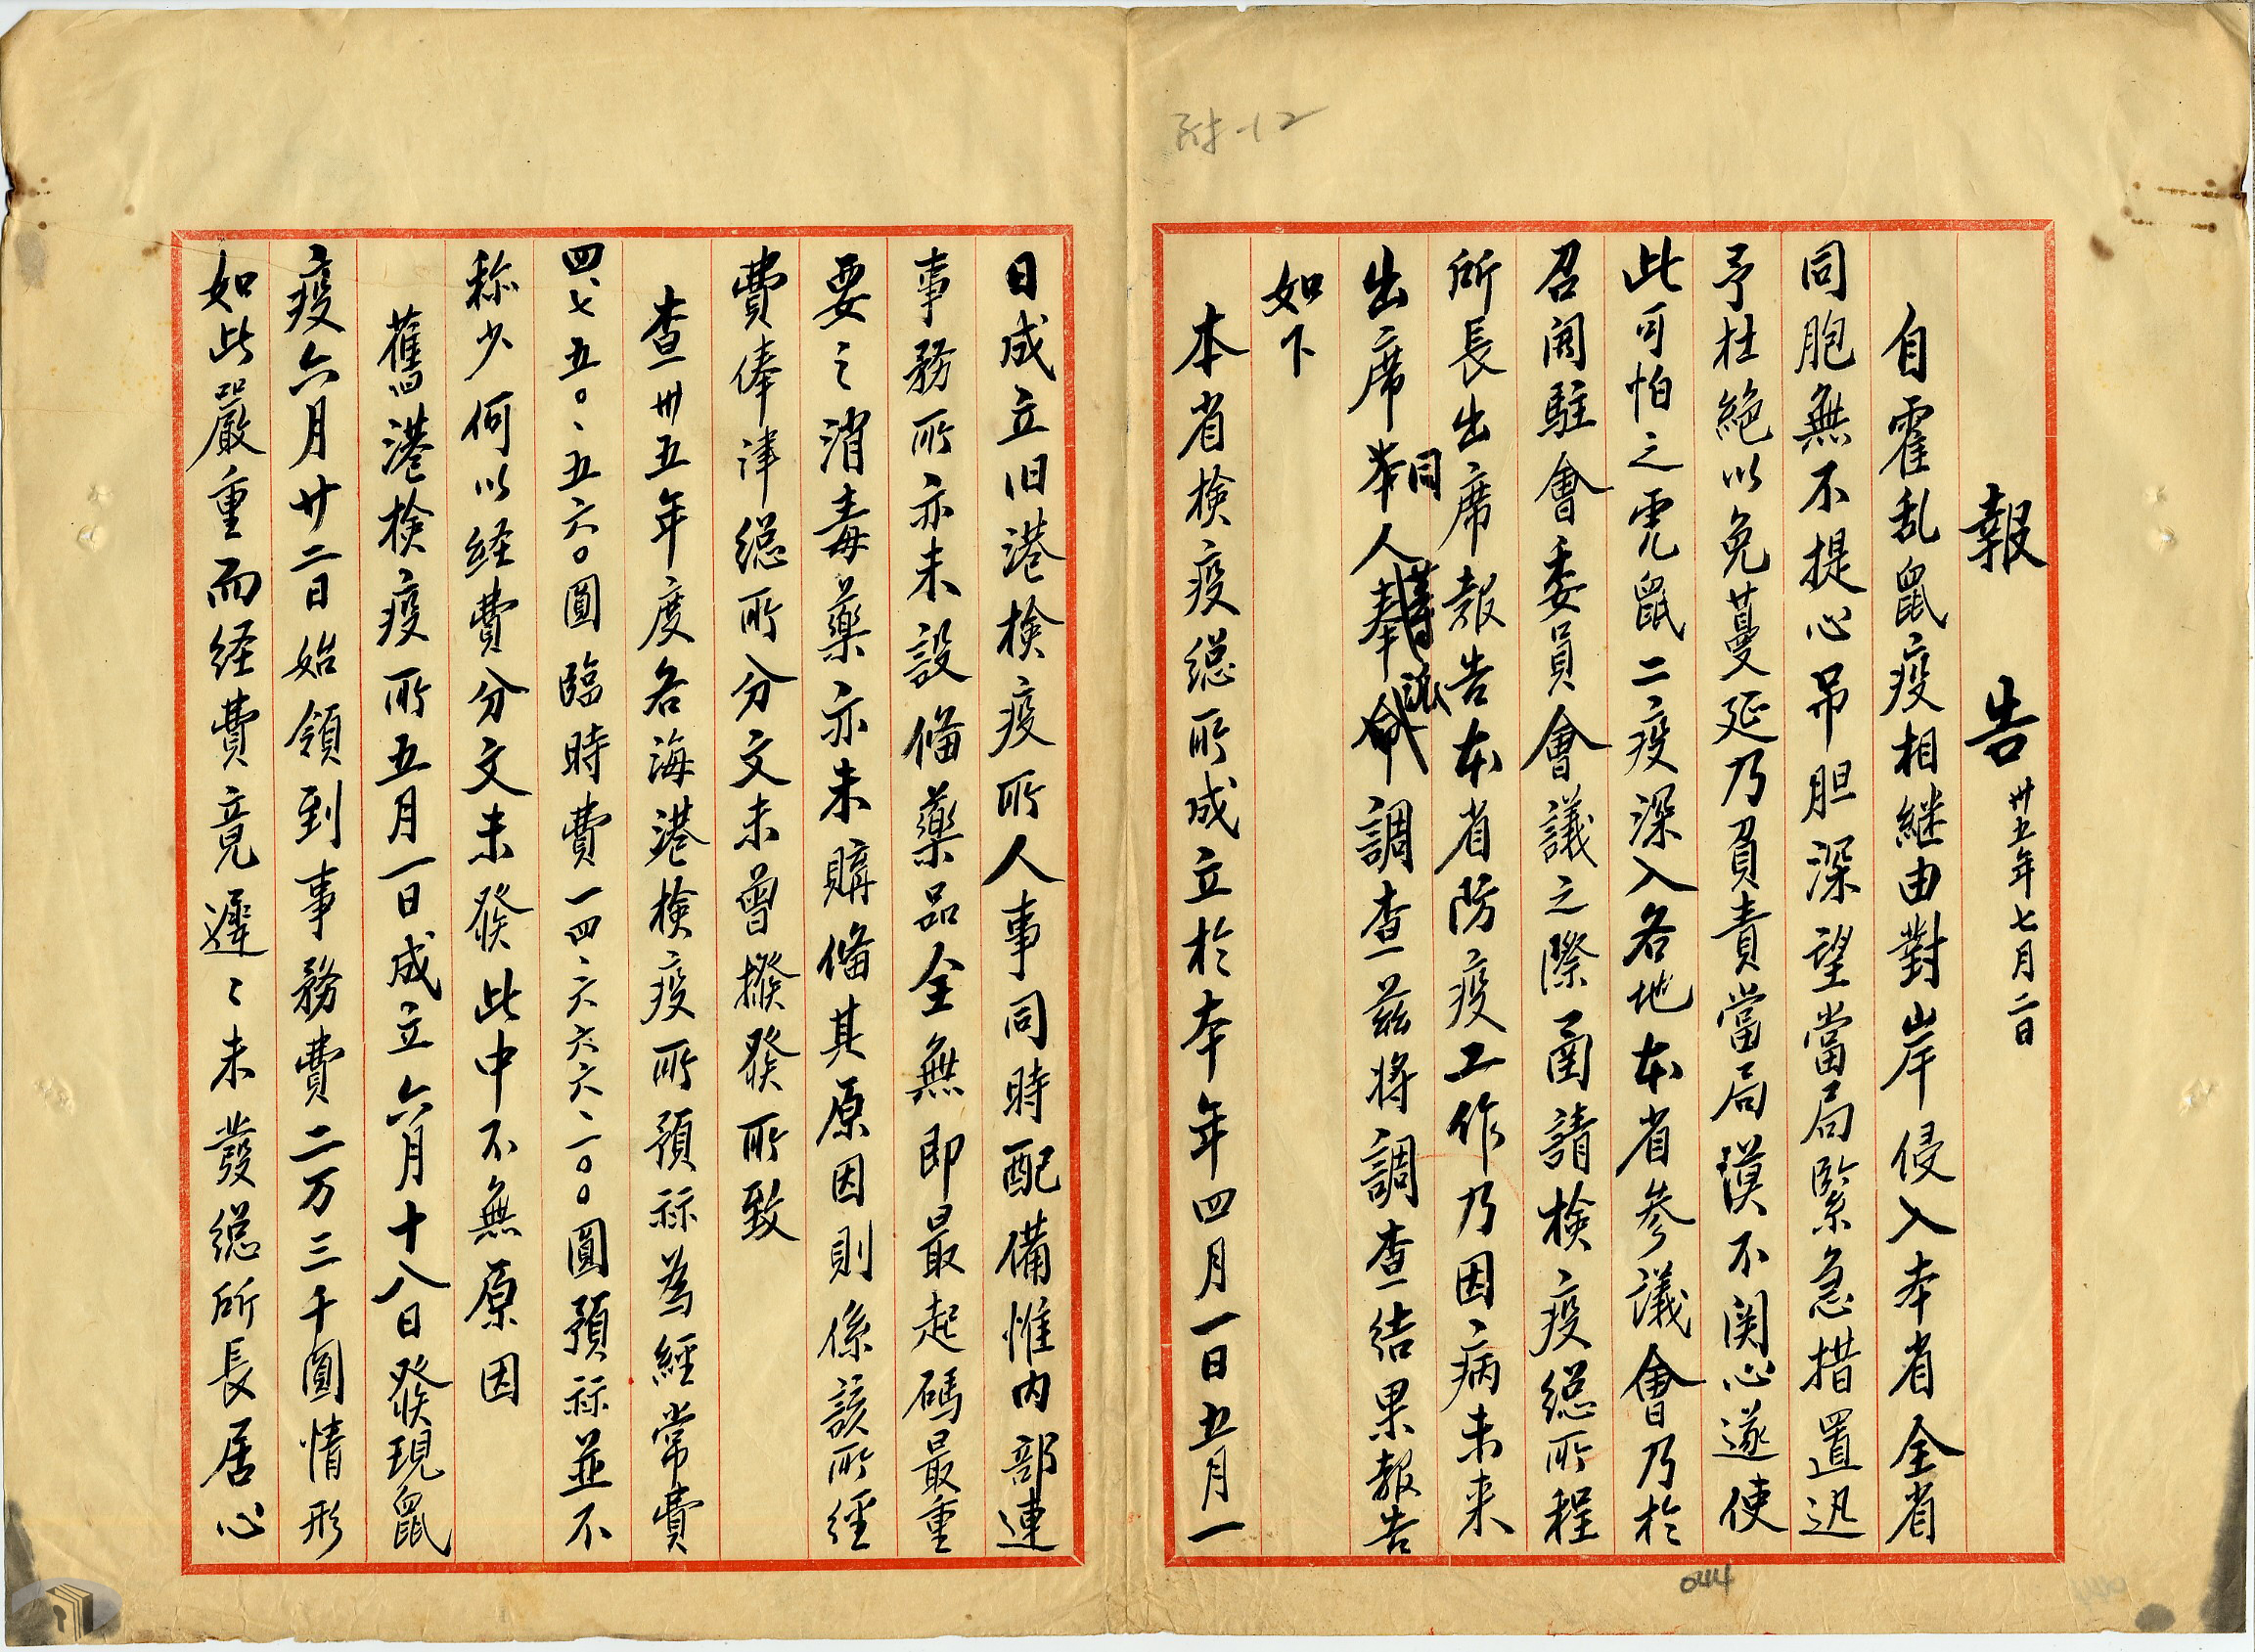 附-12
報告 卅五年七月二日
自霍乱鼠疫相継由對岸侵入本省全省
同胞無不提心吊胆深望當局緊急措置迅
予杜絶以免蔓延乃負責當局漠不関心遂使
此可怕之霍鼠二疫深入各地本省參議會乃於
召開駐會委員會議之際函請檢疫総所程
所長出席報告本省防疫工作乃因病未来
出席本同人調查茲將調查結果報告
如下
本省檢疫総所成立於本年四月一日五月一
日成立旧港檢疫所人事同時配備惟内部連
事務所亦未設备藥品全無即最起碼最重
要之消毒藥亦未購备其原因則係該所經
費俸津総所分文未曾撥發所致
查卅五年度各海港檢疫所預祘為經常費
四、七五〇、五六〇圓臨時費一四、六六六、一〇〇圓預祘並不
称少何以経費分文未發此中不無原因
舊港檢疫所五月一日成立六月十八日發現鼠
疫六月廿二日始領到事務費二万三千圓情形
如此嚴重而経費竟遲々未發総所長居心
044